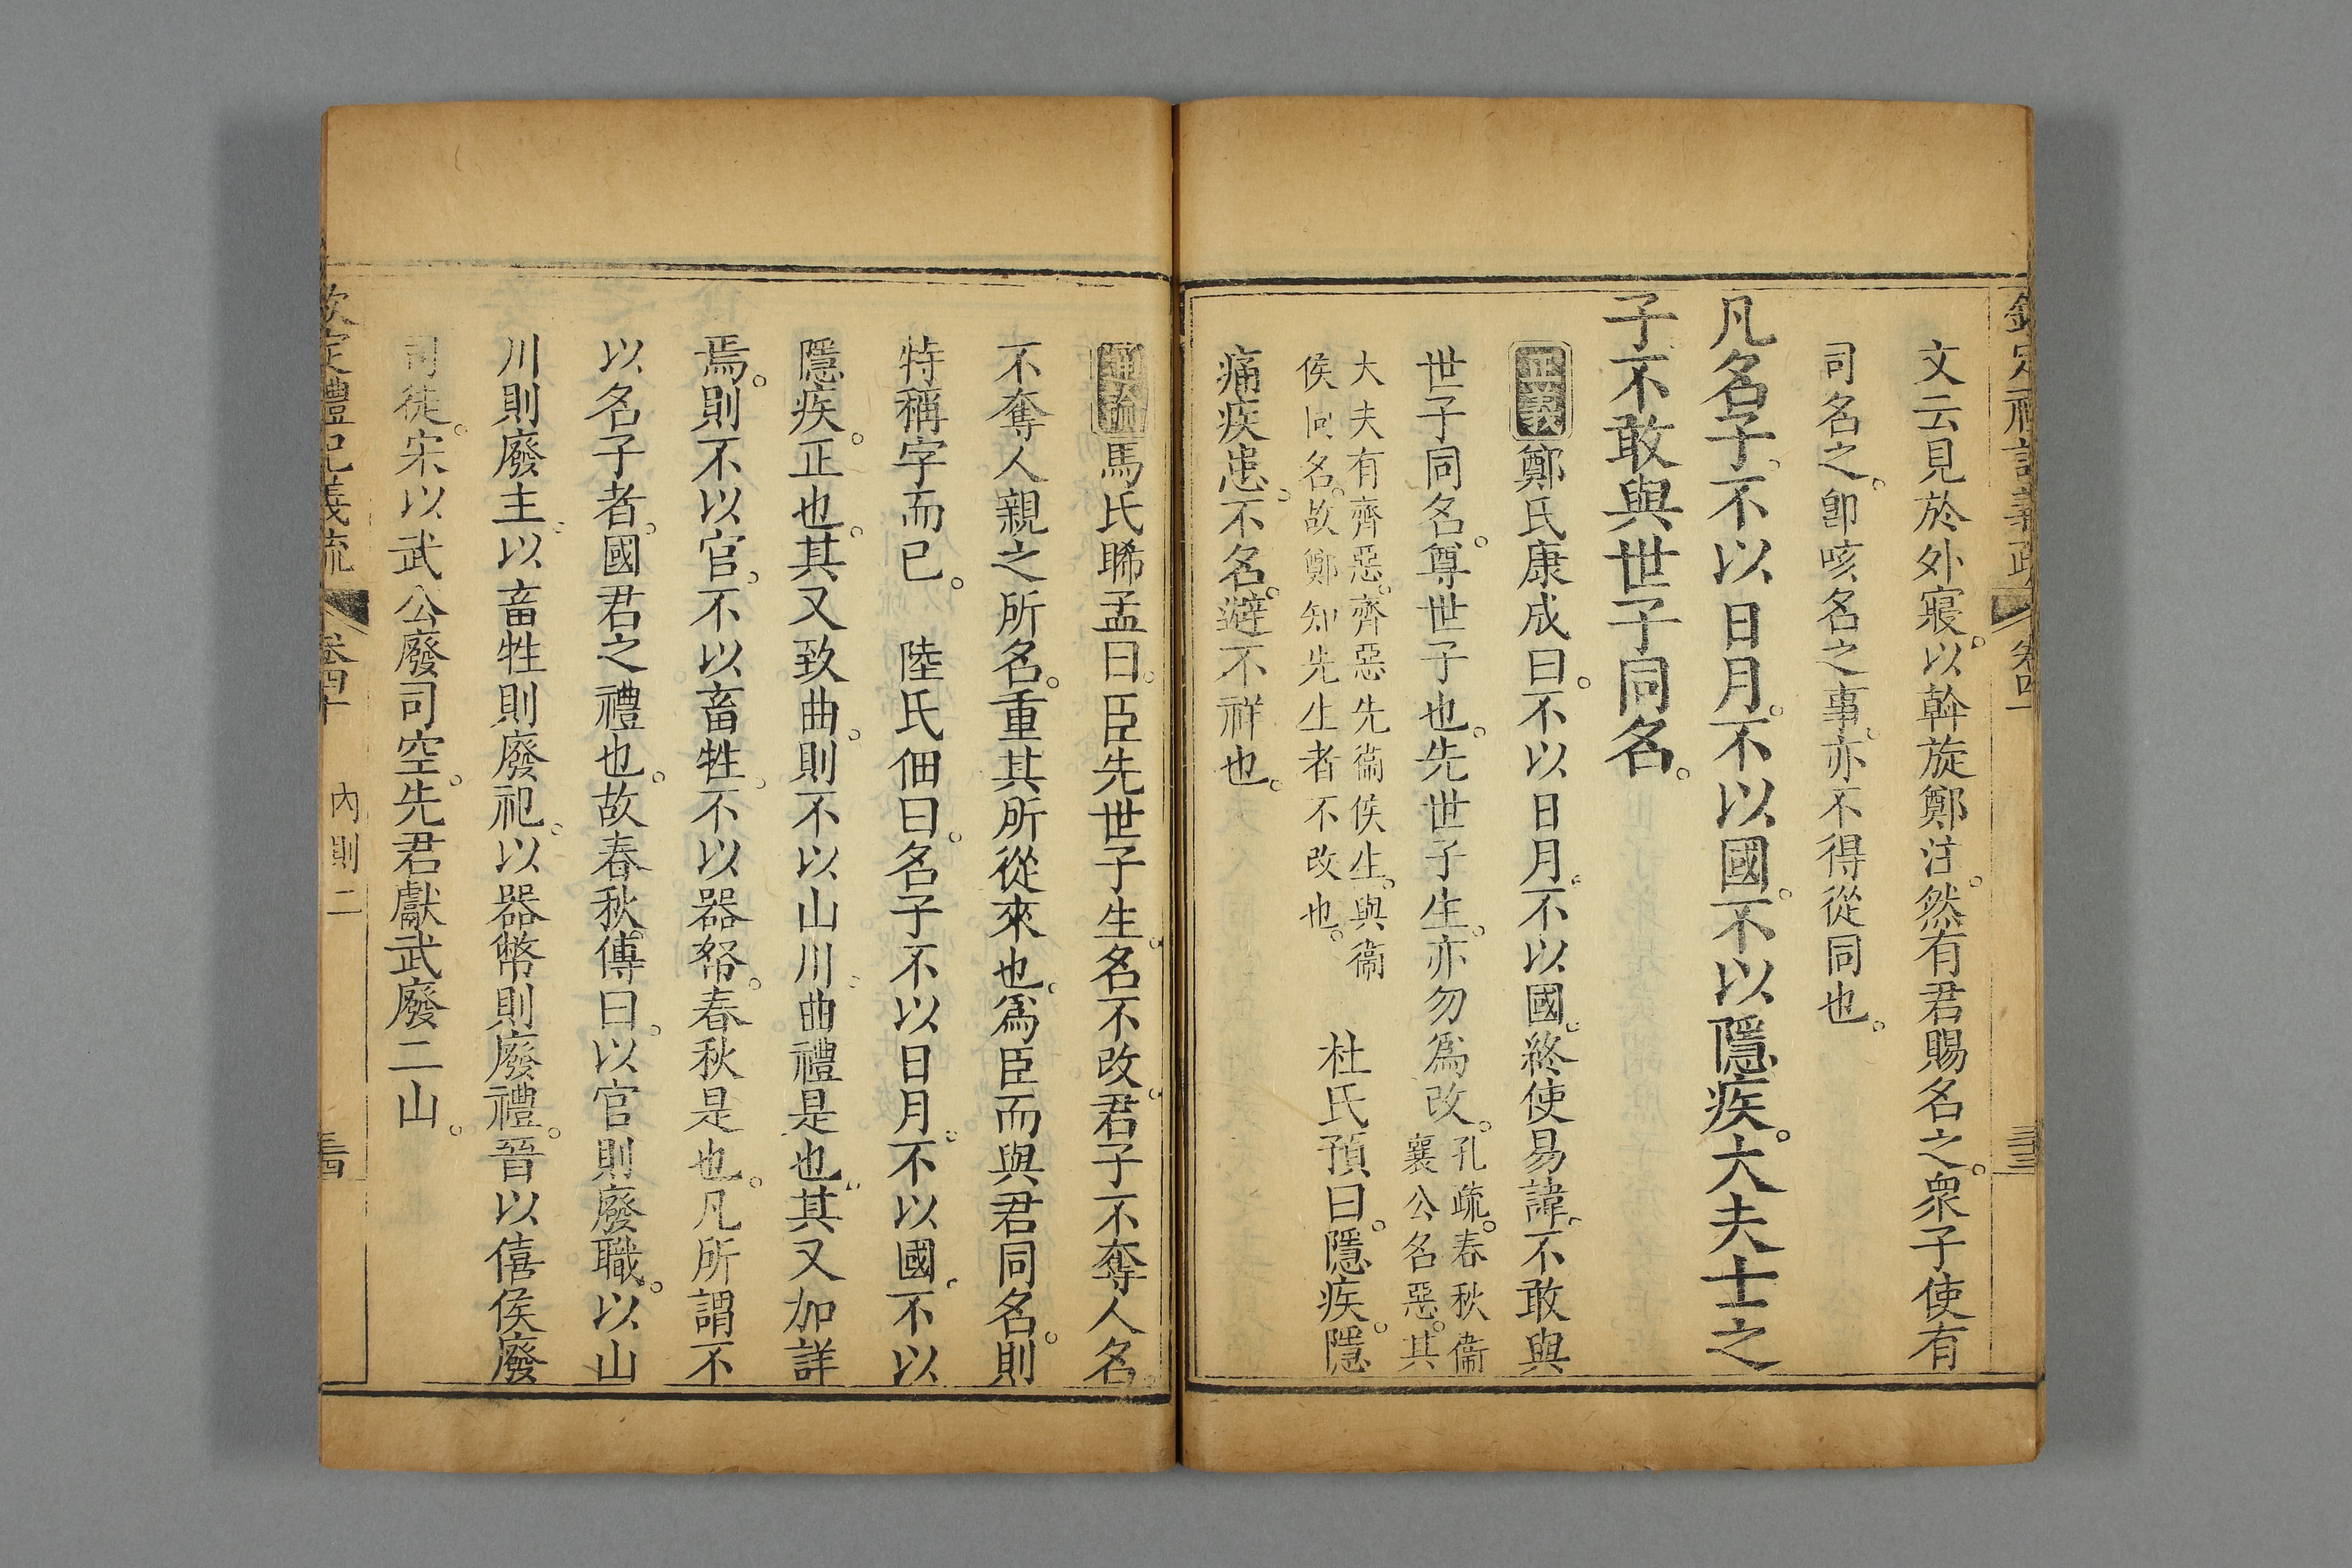 文云見於外寢以斡旋鄭注然有君賜名之衆子使有
司名之卽咳名之事亦不得從同也
凡名子不以日月不以國不以隱疾大夫士之
子不敢與世子同名
正義鄭氏康成曰不以日月不以國終使易諱不敢與
世子同名尊世子也先世子生亦勿爲改孔疏春秋衞
襄公名惡其
大夫有齊惡齊惡先衞侯生與衞
侯同名故鄭知先生者不改也　杜氏預曰隱疾隱
痛疾患不名辟不祥也
通論馬氏晞孟曰臣先世子生名不改君子不奪人名
不奪人親之所名重其所從來也爲臣而與君同名則
特稱字而已　陸氏佃曰名子不以日月不以國不以
隱疾正也其又致曲則不以山川曲禮是也其又加詳
焉則不以官不以畜牲不以器帑春秋是也凡所謂不
以名子者國君之禮也故春秋傳曰以官則廢職以山
川則廢主以畜牲則廢祀以器幣則廢禮晉以僖侯廢
司徒宋以武公廢司空先君獻武廢二山
欽定禮記義疏　卷四十　內則二